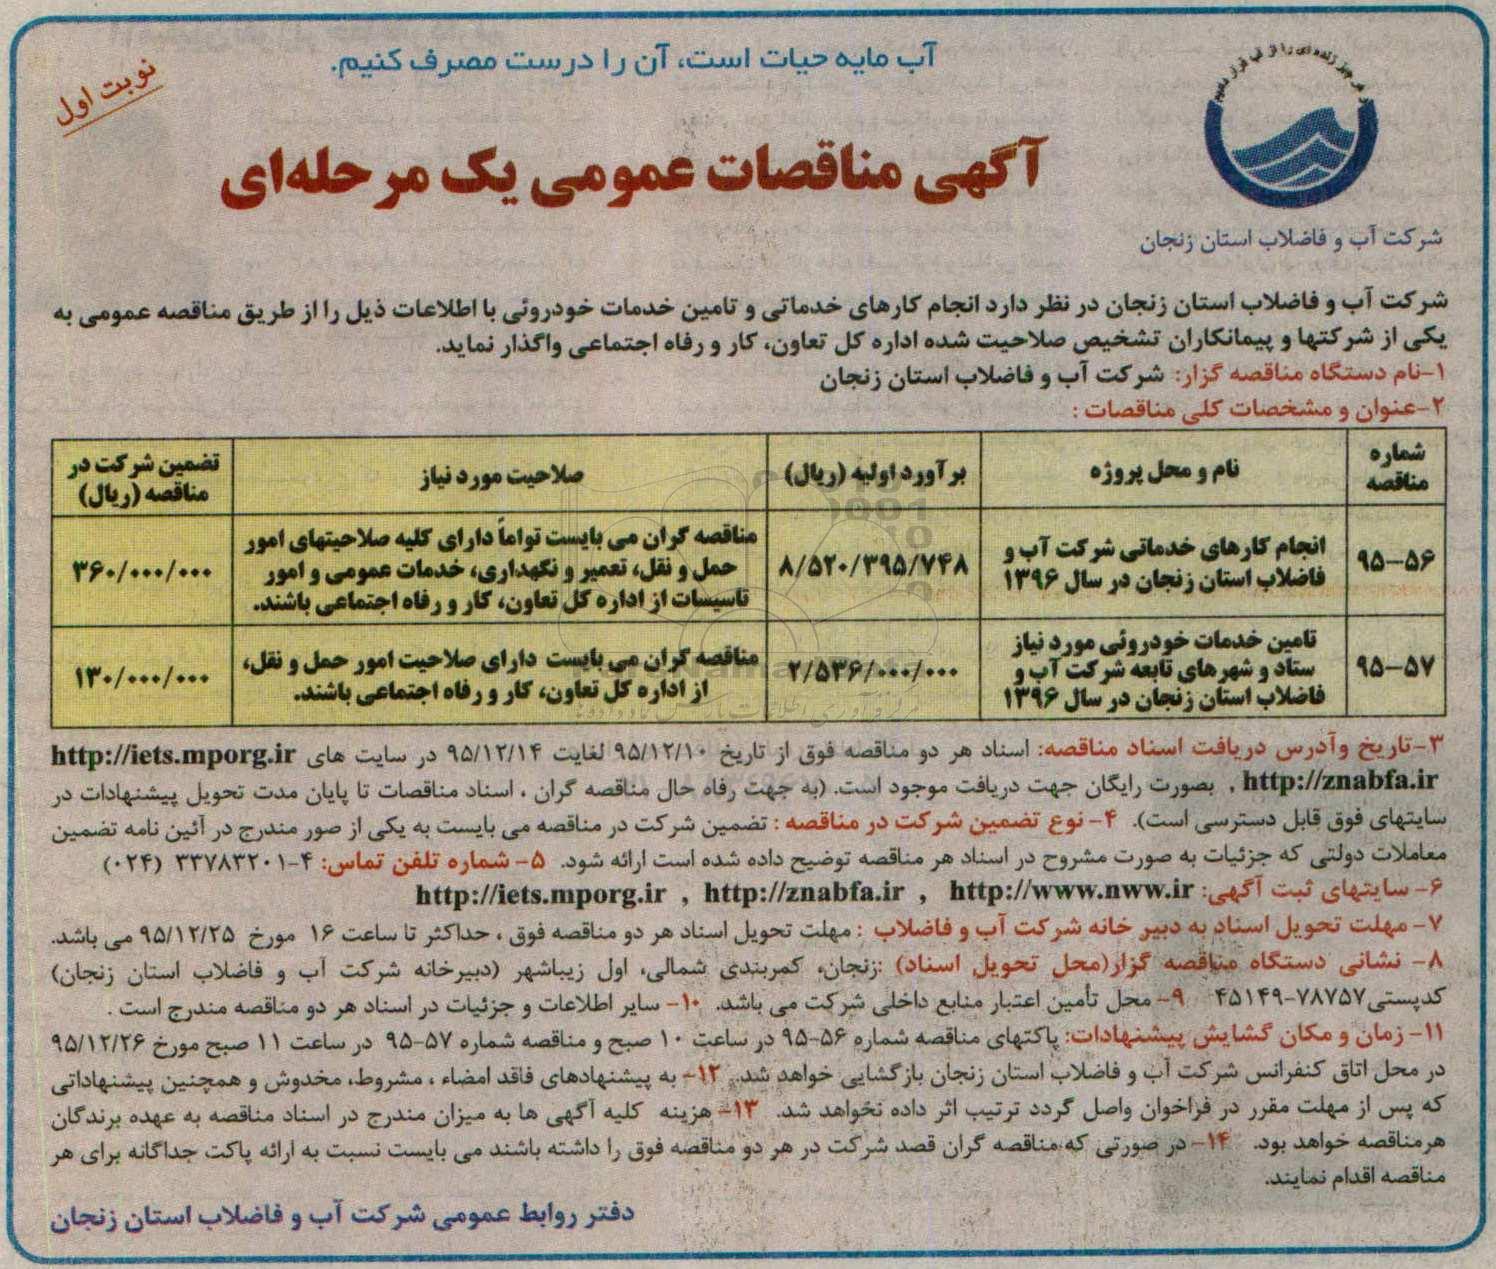 آب مایه حیات است، آن را درست مصرف کنیم.
نوبت اول
آگهی مناقصات عمومی یک مرحله‌ای
شرکت آب و فاضلاب استان زنجان
شرکت آب و فاضلاب استان زنجان در نظر دارد انجام کارهای خدماتی و تامین خدمات خودروئی با اطلاعات ذیل را از طریق مناقصه عمومی به
یکی از شرکتها و پیمانکاران تشخیص صلاحیت شده اداره کل تعاون، کار و رفاه اجتماعی واگذار نماید.
۱-نام دستگاه مناقصه گزار: شرکت آب و فاضلاب استان زنجان
۲-عنوان و مشخصات کلی مناقصات :
شماره مناقصه | نام و محل پروژه | برآورد اولیه (ریال) | صلاحیت مورد نیاز | تضمین شرکت در مناقصه (ریال)
۹۵-۵۶ | انجام کارهای خدماتی شرکت آب و فاضلاب استان زنجان در سال ۱۳۹۶ | ۸/۵۲۰/۳۹۵/۷۴۸ | مناقصه گران می بایست تواماً دارای کلیه صلاحیتهای امور حمل و نقل، تعمیر و نگهداری، خدمات عمومی و امور تاسیسات از اداره کل تعاون، کار و رفاه اجتماعی باشند. | ۳۶۰/۰۰۰/۰۰۰
۹۵-۵۷ | تامین خدمات خودروئی مورد نیاز ستاد و شهرهای تابعه شرکت آب و فاضلاب استان زنجان در سال ۱۳۹۶ | ۲/۵۳۶/۰۰۰/۰۰۰ | مناقصه گران می بایست دارای صلاحیت امور حمل و نقل، از اداره کل تعاون، کار و رفاه اجتماعی باشند. | ۱۳۰/۰۰۰/۰۰۰
۳-تاریخ وآدرس دریافت اسناد مناقصه: اسناد هر دو مناقصه فوق از تاریخ ۹۵/۱۲/۱۰ لغایت ۹۵/۱۲/۱۴ در سایت های http://iets.mporg.ir
http://znabfa.ir , بصورت رایگان جهت دریافت موجود است. (به جهت رفاه حال مناقصه گران ، اسناد مناقصات تا پایان مدت تحویل پیشنهادات در
سایتهای فوق قابل دسترسی است). ۴- نوع تضمین شرکت در مناقصه : تضمین شرکت در مناقصه می بایست به یکی از صور مندرج در آئین نامه تضمین
معاملات دولتی که جزئیات به صورت مشروح در اسناد هر مناقصه توضیح داده شده است ارائه شود. ۵- شماره تلفن تماس: ۴-۳۳۷۸۳۲۰۱ (۰۲۴)
۶- سایتهای ثبت آگهی: http://iets.mporg.ir , http://znabfa.ir , http://www.nww.ir
۷- مهلت تحویل اسناد به دبیر خانه شرکت آب و فاضلاب : مهلت تحویل اسناد هر دو مناقصه فوق ، حداکثر تا ساعت ۱۶ مورخ ۹۵/۱۲/۲۵ می باشد.
۸- نشانی دستگاه مناقصه گزار(محل تحویل اسناد) :زنجان، کمربندی شمالی، اول زیباشهر (دبیرخانه شرکت آب و فاضلاب استان زنجان)
کدپستی۷۸۷۵۷-۴۵۱۴۹ ۹- محل تأمین اعتبار منابع داخلی شرکت می باشد. ۱۰- سایر اطلاعات و جزئیات در اسناد هر دو مناقصه مندرج است .
۱۱- زمان و مکان گشایش پیشنهادات: پاکتهای مناقصه شماره ۵۶-۹۵ در ساعت ۱۰ صبح و مناقصه شماره ۵۷-۹۵ در ساعت ۱۱ صبح مورخ ۹۵/۱۲/۲۶
در محل اتاق کنفرانس شرکت آب و فاضلاب استان زنجان بازگشایی خواهد شد. ۱۲- به پیشنهادهای فاقد امضاء ، مشروط، مخدوش و همچنین پیشنهاداتی
که پس از مهلت مقرر در فراخوان واصل گردد ترتیب اثر داده نخواهد شد. ۱۳- هزینه کلیه آگهی ها به میزان مندرج در اسناد مناقصه به عهده برندگان
هرمناقصه خواهد بود. ۱۴- در صورتی که مناقصه گران قصد شرکت در هر دو مناقصه فوق را داشته باشند می بایست نسبت به ارائه پاکت جداگانه برای هر
مناقصه اقدام نمایند.
دفتر روابط عمومی شرکت آب و فاضلاب استان زنجان